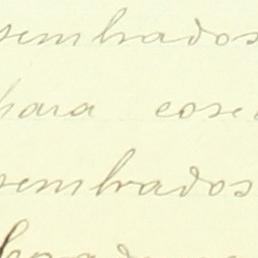 sembrados
para cose
sembrados